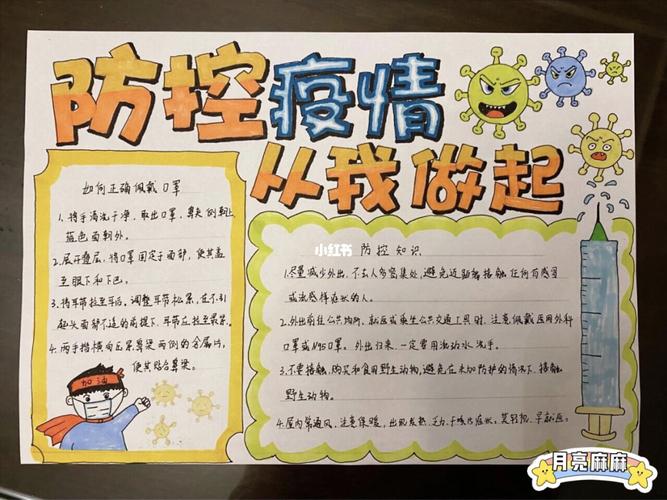 防控疫情
从我做起
如何正确佩戴口罩
1.将手清洗干净,取出口罩,鼻夹侧朝上
蓝色面朝外。
2.展开叠层,将口罩固定于面部,使其盖
至眼下和下巴。
3.将耳带拉至耳后,调整耳带松紧,在不引
起头面部不适的前提下,耳带应拉至最紧。
4.两手指横向压紧鼻梁两侧的金属片,
使其贴合鼻梁。
加油
小红书
防控知识
1.尽量减少外出,不去人多密集处,避免近距离接触任何有感冒
或流感样症状的人。
2.外出前往公共场所,就医或乘坐公共交通工具时,注意佩戴医用外科
口罩或N95口罩。外出归来,一定要用流动水洗手。
3.不要接触,购买和食用野生动物,避免在未加防护的情况下,接触
野生动物。
4.屋内常通风,注意保暖,出现发热、乏力、干咳的症状,莫轻视,早就医。
月亮麻麻